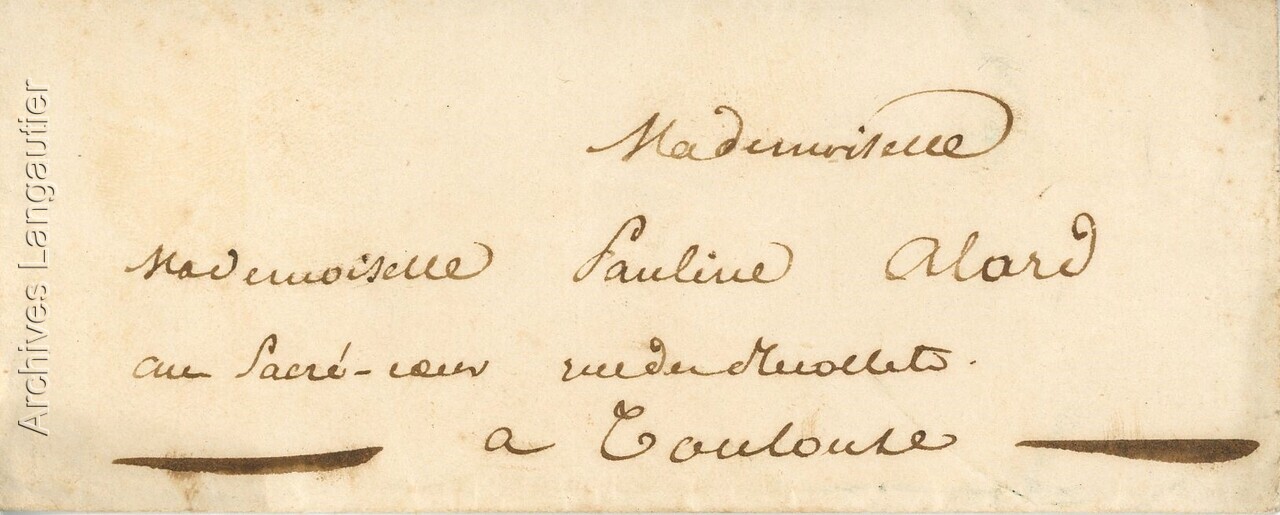 Mademoiselle
Mademoiselle Pauline Alard
au Sacré-cœur rue des Récollets.
a Toulouse
Archives Langautier